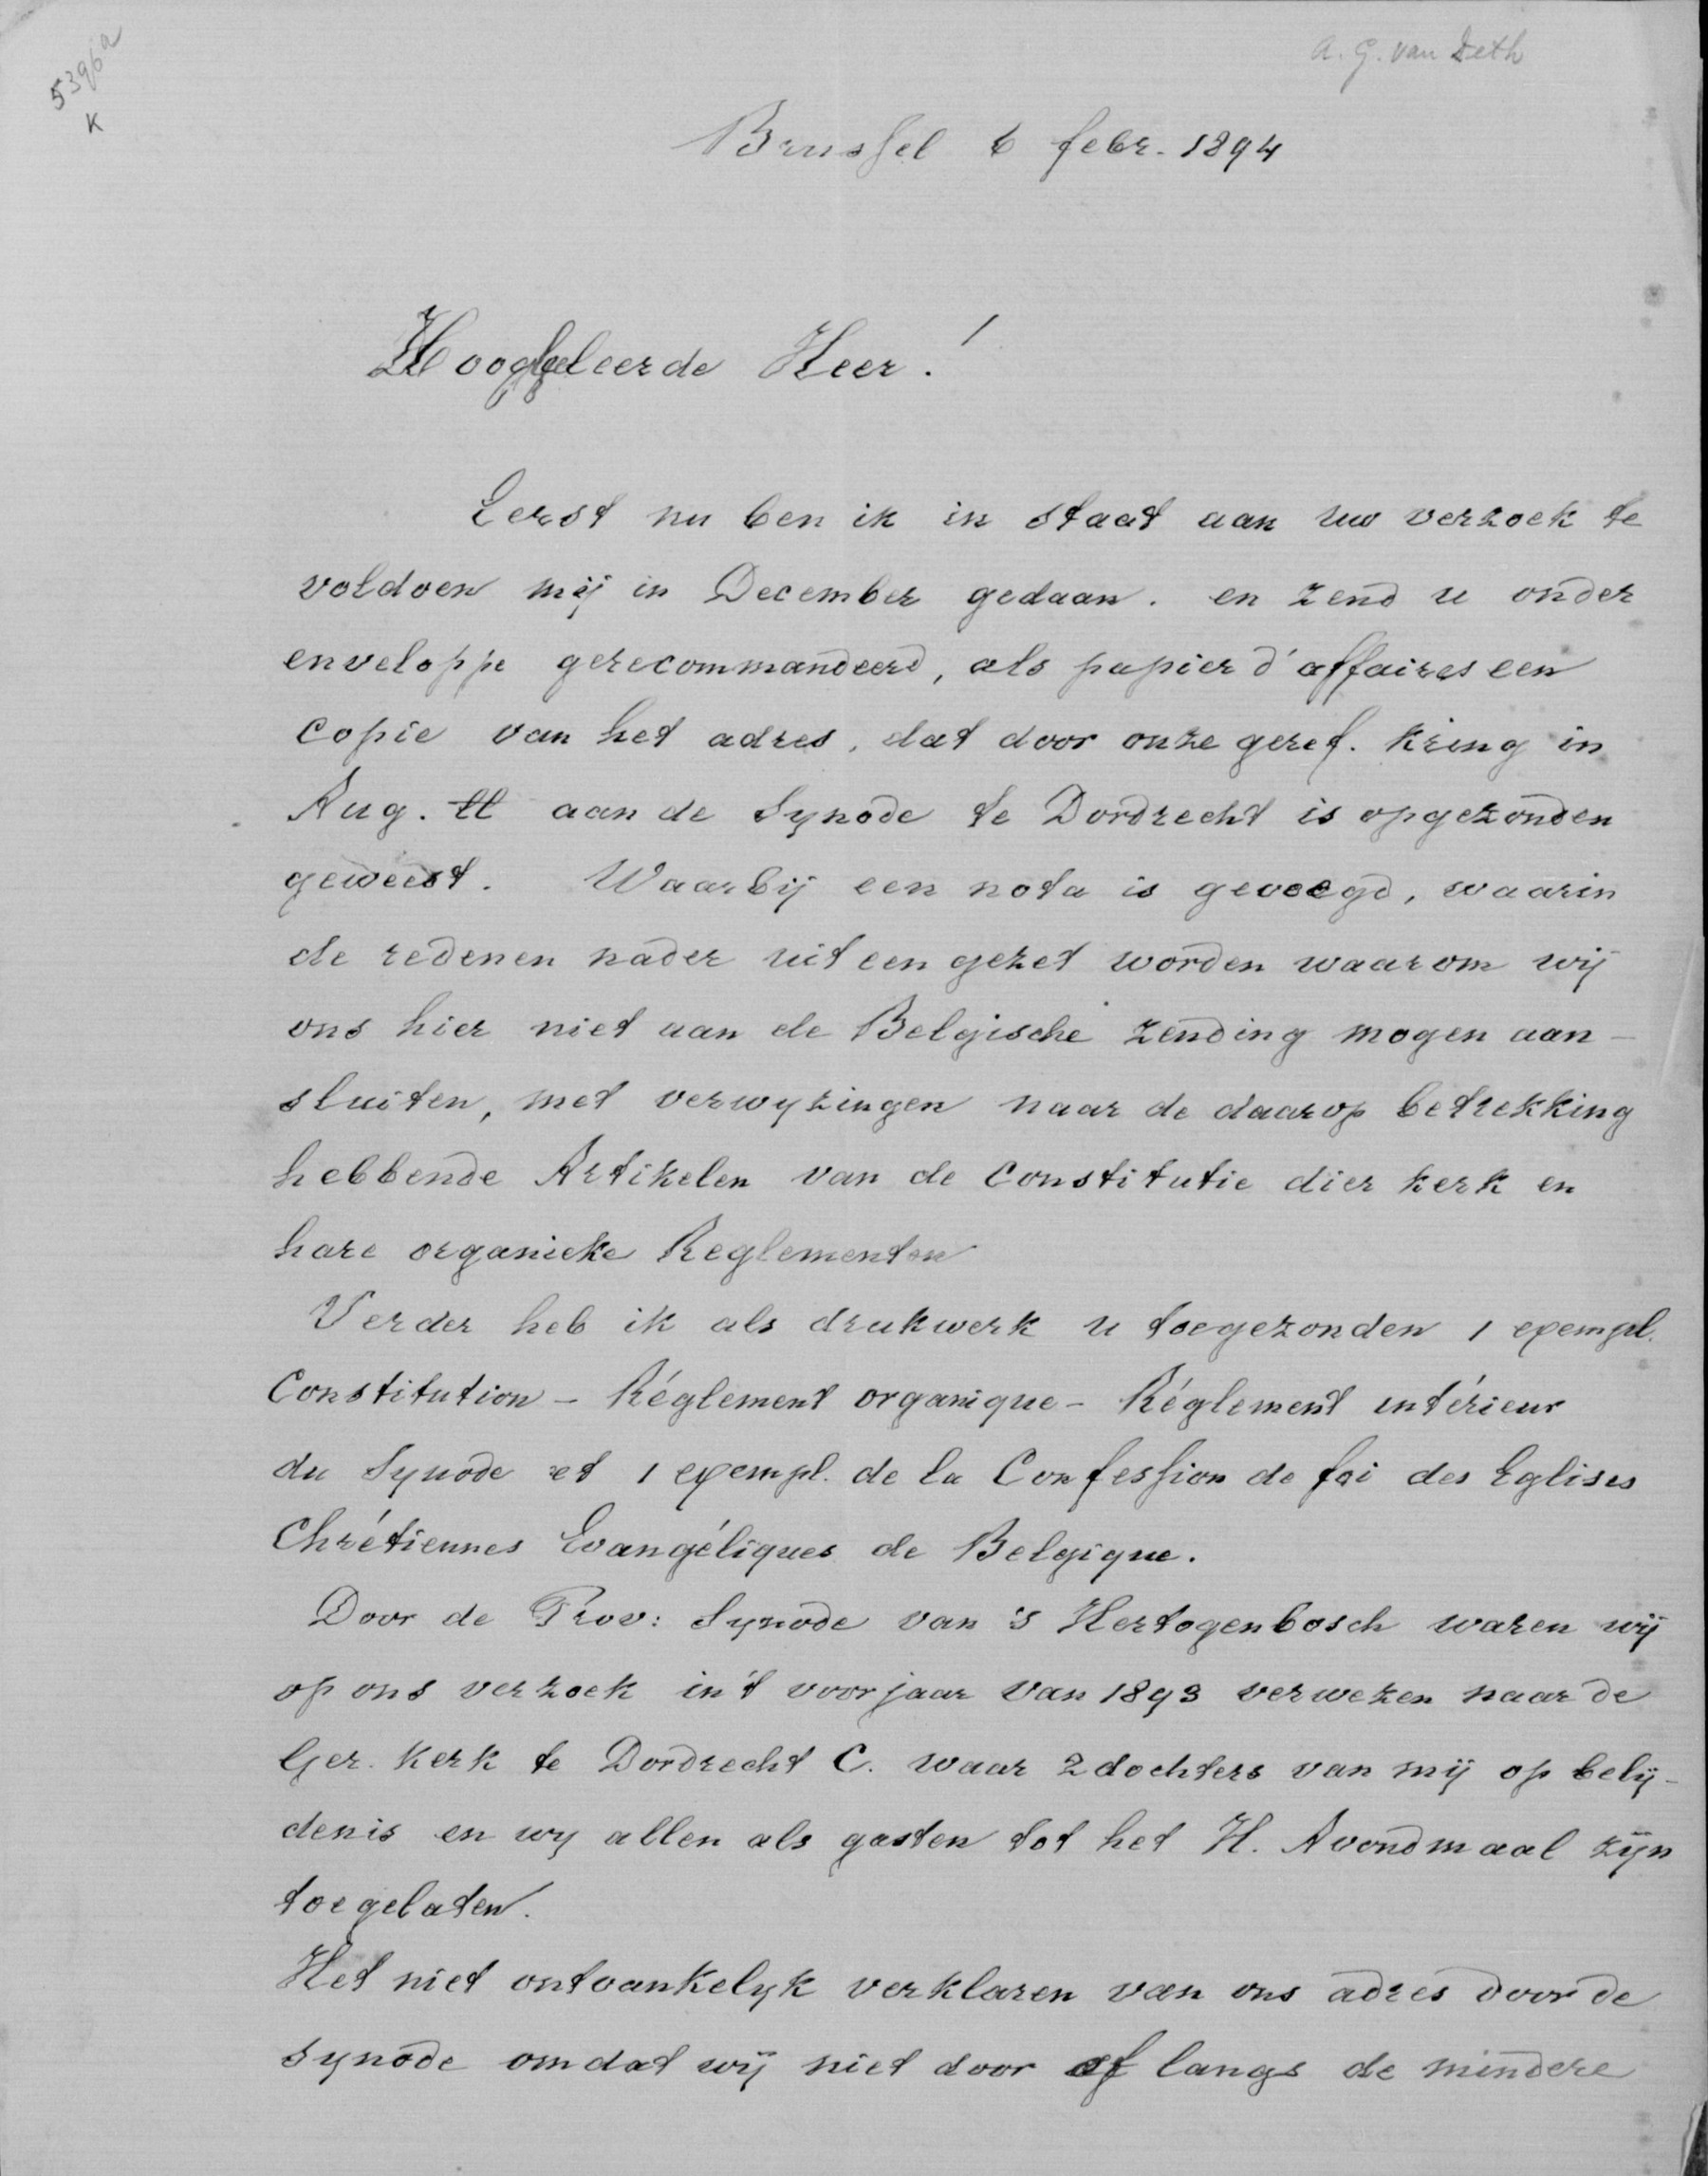 5396a
K
A. G. van Deth
Brussel 6 febr. 1894
Hooggeleerde Heer!
Eerst nu ben ik in staat aan uw verzoek te
voldoen mij in December gedaan. en zend u onder
enveloppe gerecommandeerd, als papier d'affaires een
copie van het adres, dat door onze geref. kring in
Aug. ll aan de Synode te Dordrecht is opgezonden
geweest. Waarbij een nota is gevoegd, waarin
de redenen nader uit een gezet worden waarom wij
ons hier niet aan de Belgische zending mogen aan-
sluiten, met verwyzingen naar de daarop betrekking
hebbende Artikelen van de Constitutie dier kerk en
hare organieke Reglementen
Verder heb ik als drukwerk u toegezonden 1 exempl.
Constitution - Réglement organique - Réglement intérieur
du Synode et 1 exempl. de la Confession de foi des Eglises
Chrétiennes Evangéliques de Belgique.
Door de Prov: Synode van 's Hertogenbosch waren wij
op ons verzoek in't voorjaar van 1893 verwezen naar de
Ger. Kerk te Dordrecht C. waar 2 dochters van mij op belij-
denis en wy allen als gasten tot het H. Avondmaal zijn
toegelaten.
Het niet ontvankelyk verklaren van ons adres door de
synode omdat wij niet door of langs de mindere